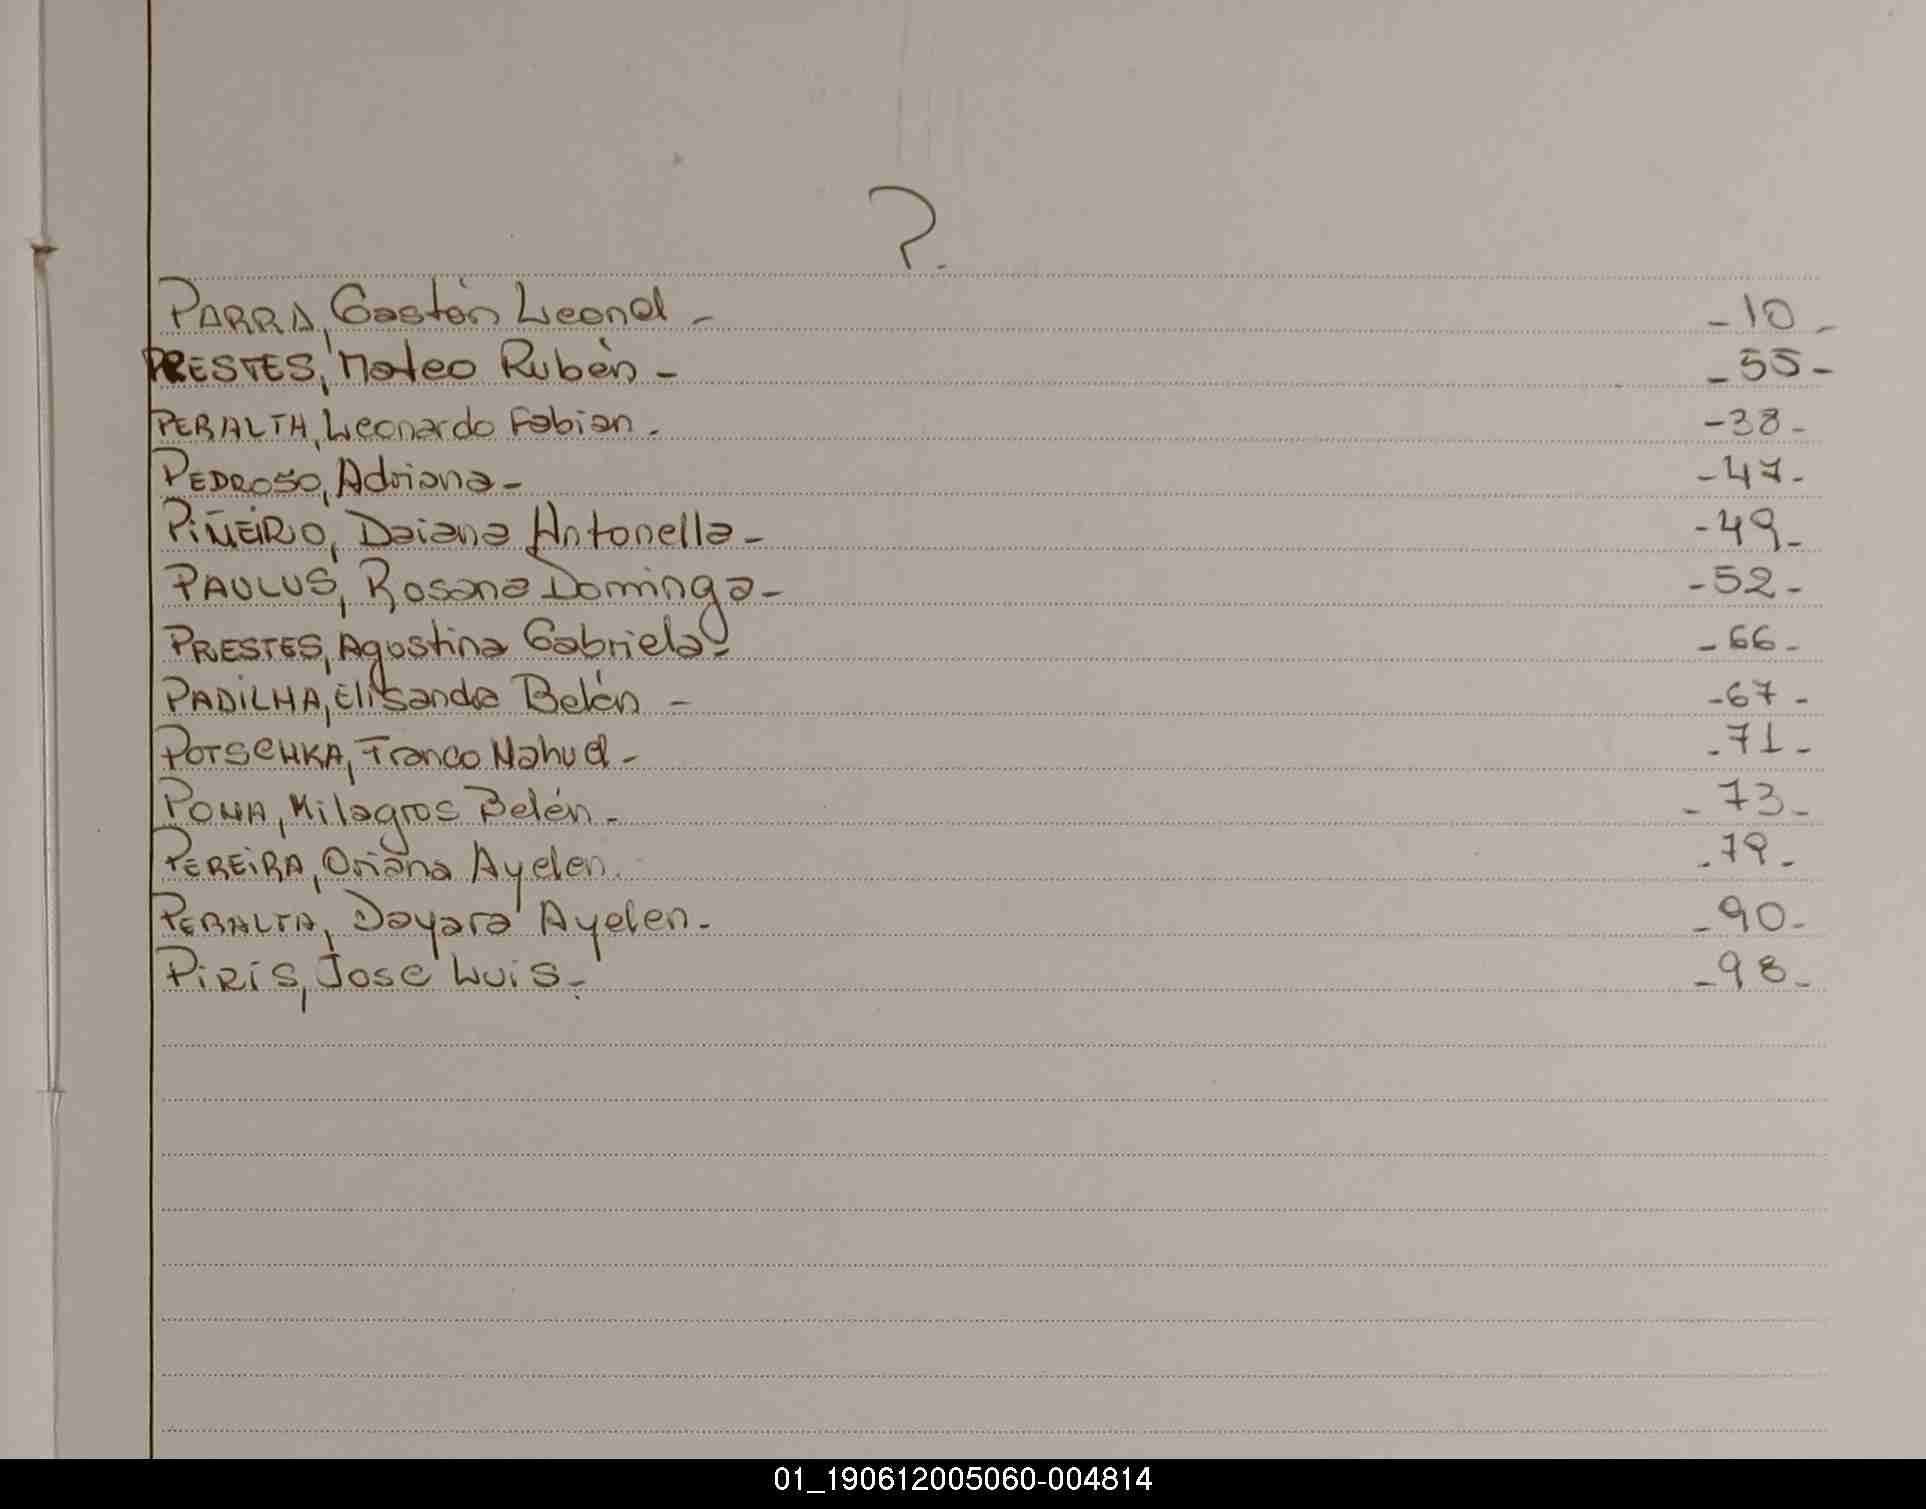 P.
PARRA, Gastón Leonel - -10-
PRESTES, Mateo Rubén - -55-
PERALTA, Leonardo Fabian. -38-
PEDROSO, Adriana- -47-
PIÑEIRO, Daiana Antonella- -49-
PAULUS, Rosana Dominga- -52-
PRESTES, Agostina Gabriela- -66-
PADILHA, Elisandra Belén - -67-
POTSCHKA, Franco Nahuel- -71-
Milagros Belén- -73-
PEREIRA, Oriana Ayelen. -79-
PERALTA, Dayara Ayelen- -90-
PIRIS, Jose Luis- -98-
01_190612005060-004814